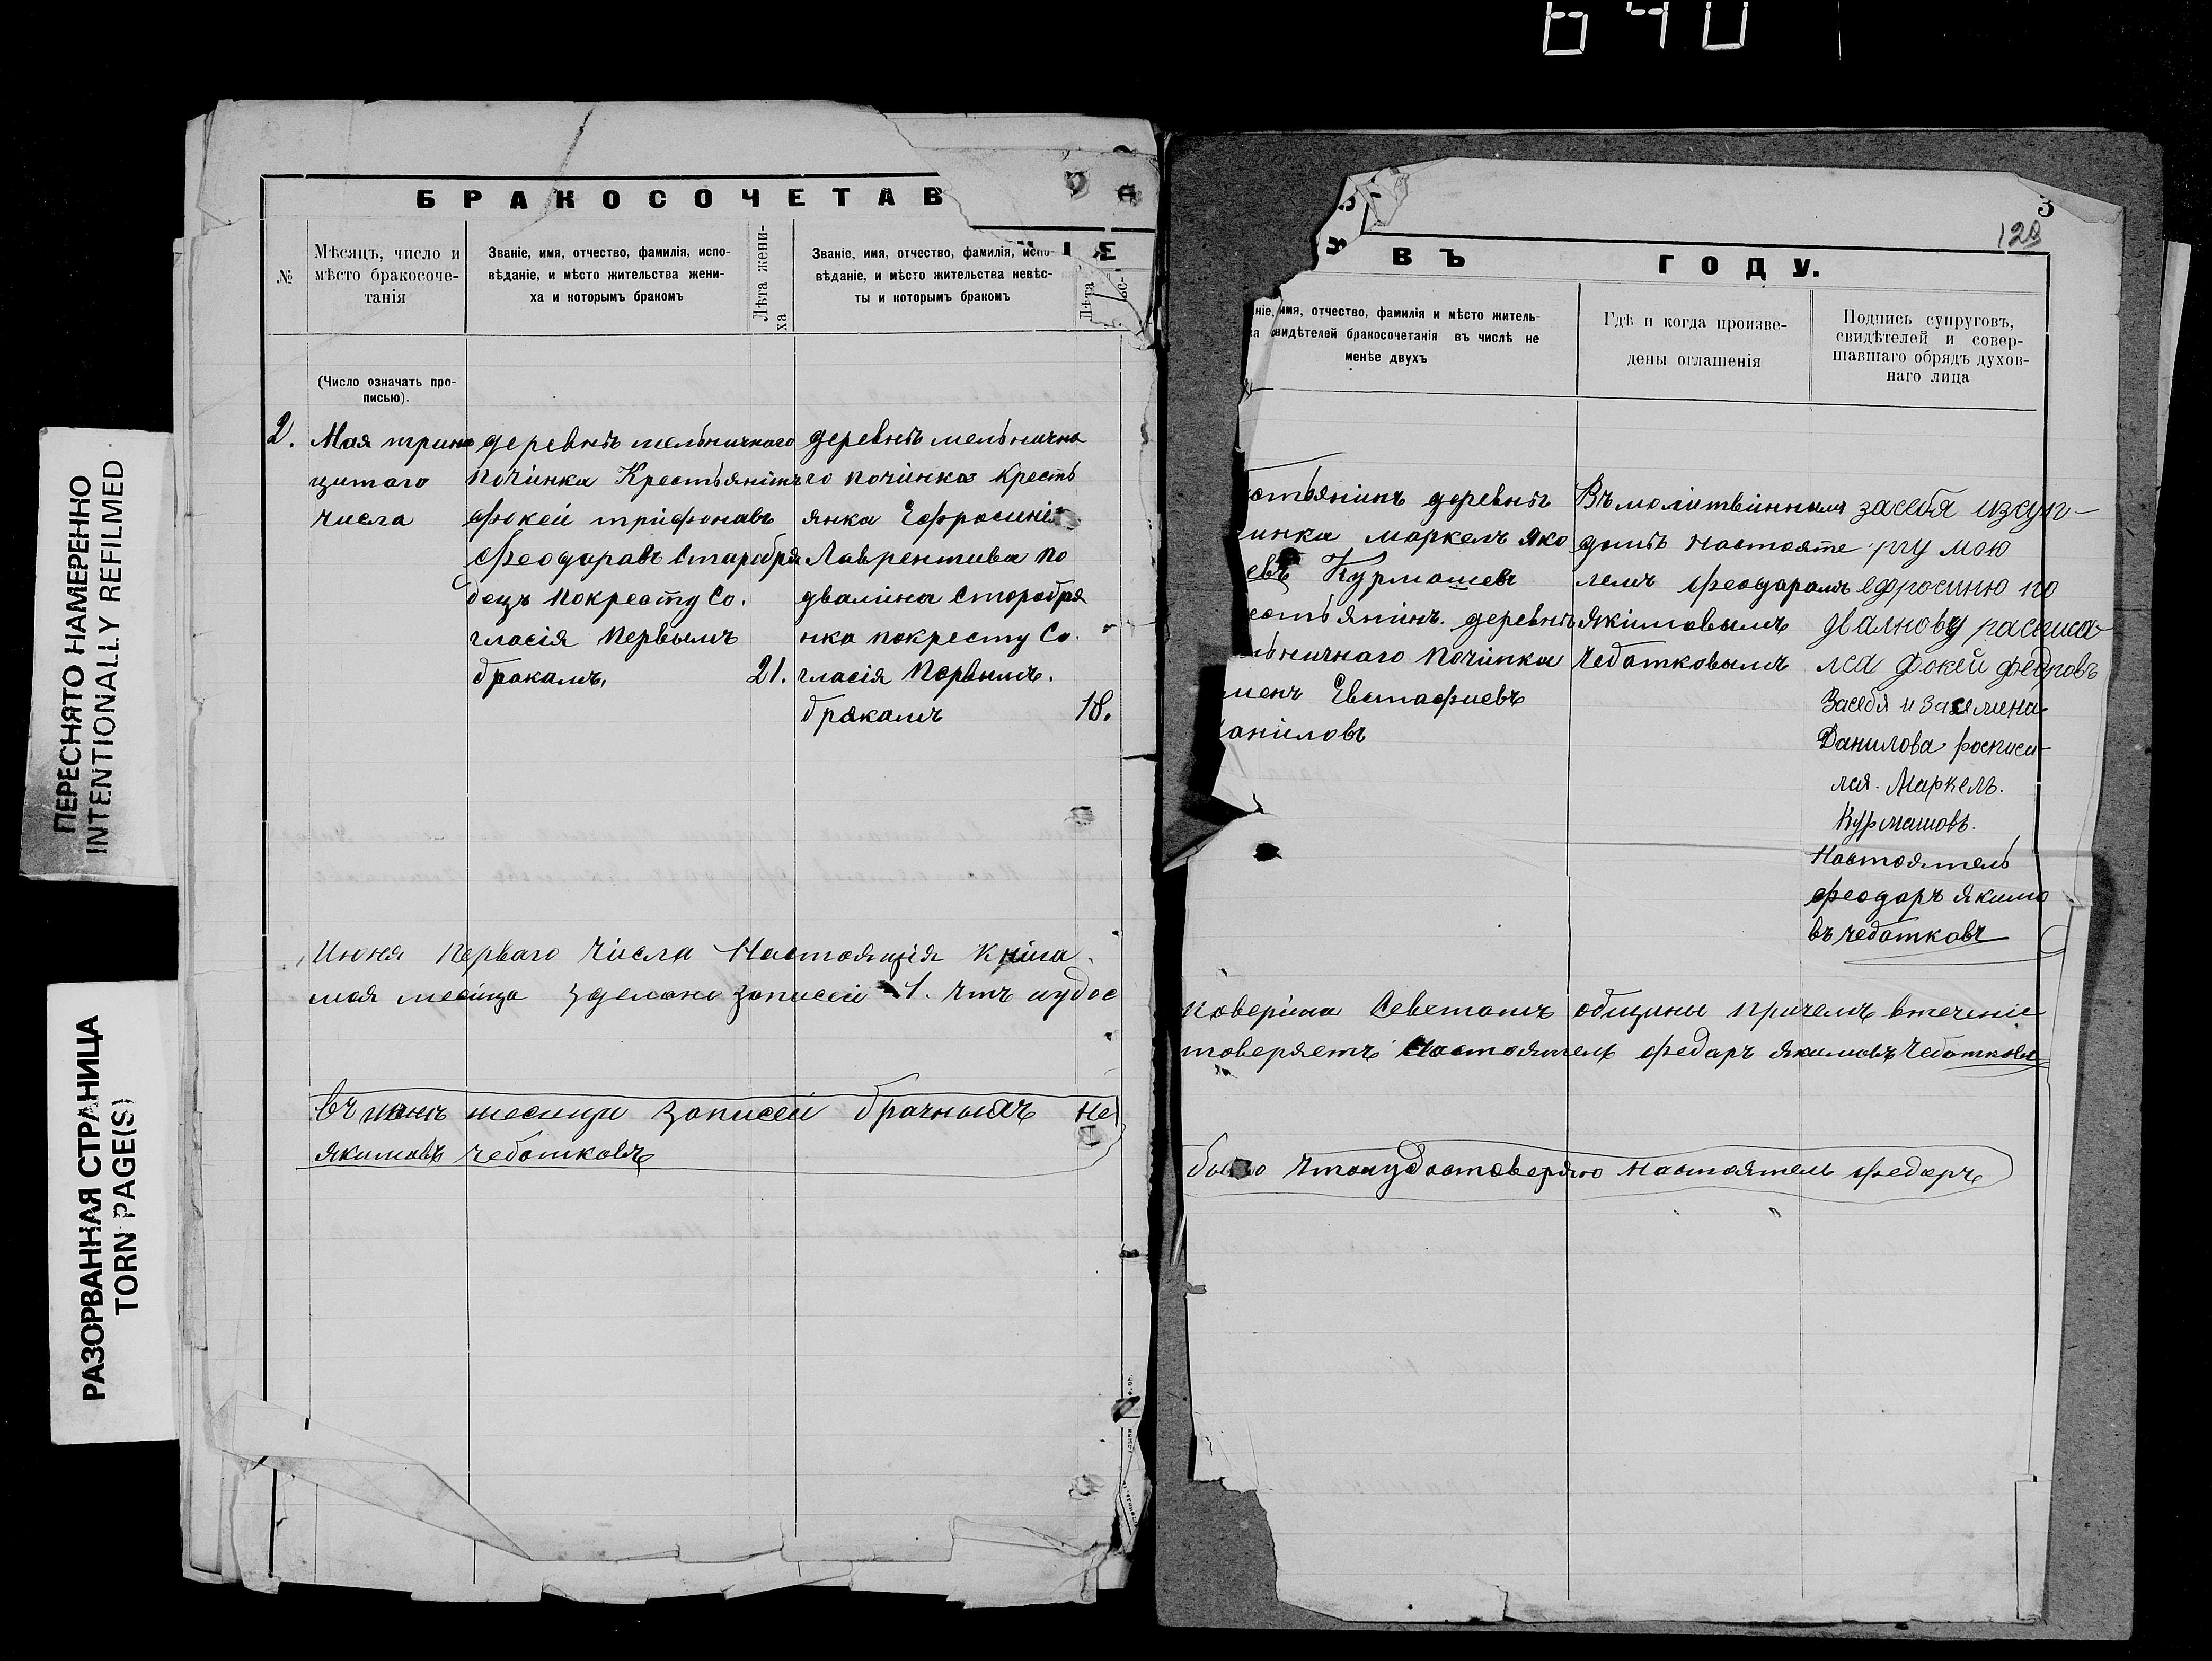 640
ПЕРЕСНЯТО НАМЕРЕННО
INTENTIONALLY REFILMED
РАЗОРВАННАЯ СТРАНИЦА
TORN PAGE(S)
БРАКОСОЧЕТАВ
ІЕ
№
Мѣсяцъ, число и
мѣсто бракосоче-
танія
(Число означать про-
писью).
Званіе, имя, отчество, фамилія, испо-
вѣданіе, и мѣсто жительства жени-
ха и которымъ бракомъ
Лѣта жени-
ха
Званіе, имя, отчество, фамилія, испо-
вѣданіе, и мѣсто жительства невѣс-
ты и которымъ бракомъ
Лѣта
2.
Мая трит
цатаго
числа
деревнѣ мельничнаго
почінка Крестьянінъ
Фокей трифонавъ
Феодаравъ Старобря
децъ покресту Со.
гласія первымъ
бракамъ,
21.
деревнѣ мельнична
го почінка кресть
янка Ефросинія
Лаврентива По
дваліна Старобря
нка покресту Со.
гласія Первымъ.
бракамъ
18.
Июня перваго чісла Настоящія кніга
мая месяца зделано записей 1. что удос
въ июнѣ месяци записей брачныхъ не
якимовъ чебатковъ
3
128
ВЪ ГОДУ.
ніе, имя, отчество, фамилія и мѣсто житель-
ва свидѣтелей бракосочетанія въ числѣ не
менѣе двухъ
Гдѣ и когда произве-
дены оглашенія
Подпись супруговъ,
свидѣтелей и совер-
шавшаго обрядъ духов-
наго лица
стьянінъ деревнѣ
инка маркелъ яко
евъ Курмашевъ
естьянінъ. деревнѣ
льничнаго почінка
менъ Евстафиевъ
аніловъ
Въ молітвінномъ
домѣ Настояте
лемъ Феодарамъ
якімовымъ
чебатковымъ
засебя изсуп-
ругу мою
ефросиню по
двалнову расписа
лса Фокей федровъ
Засебя и за семена
Данилова росписа-
лся. Маркелъ.
Курмашовъ.
Настоятель
Феодаръ якимо
въ чебатковъ
поверіна Советамъ общины причемъ втечении
товеряетъ Настоятель Федаръ якимовъ чебатковъ
было чтоиудостоверяю настоятель федаръ